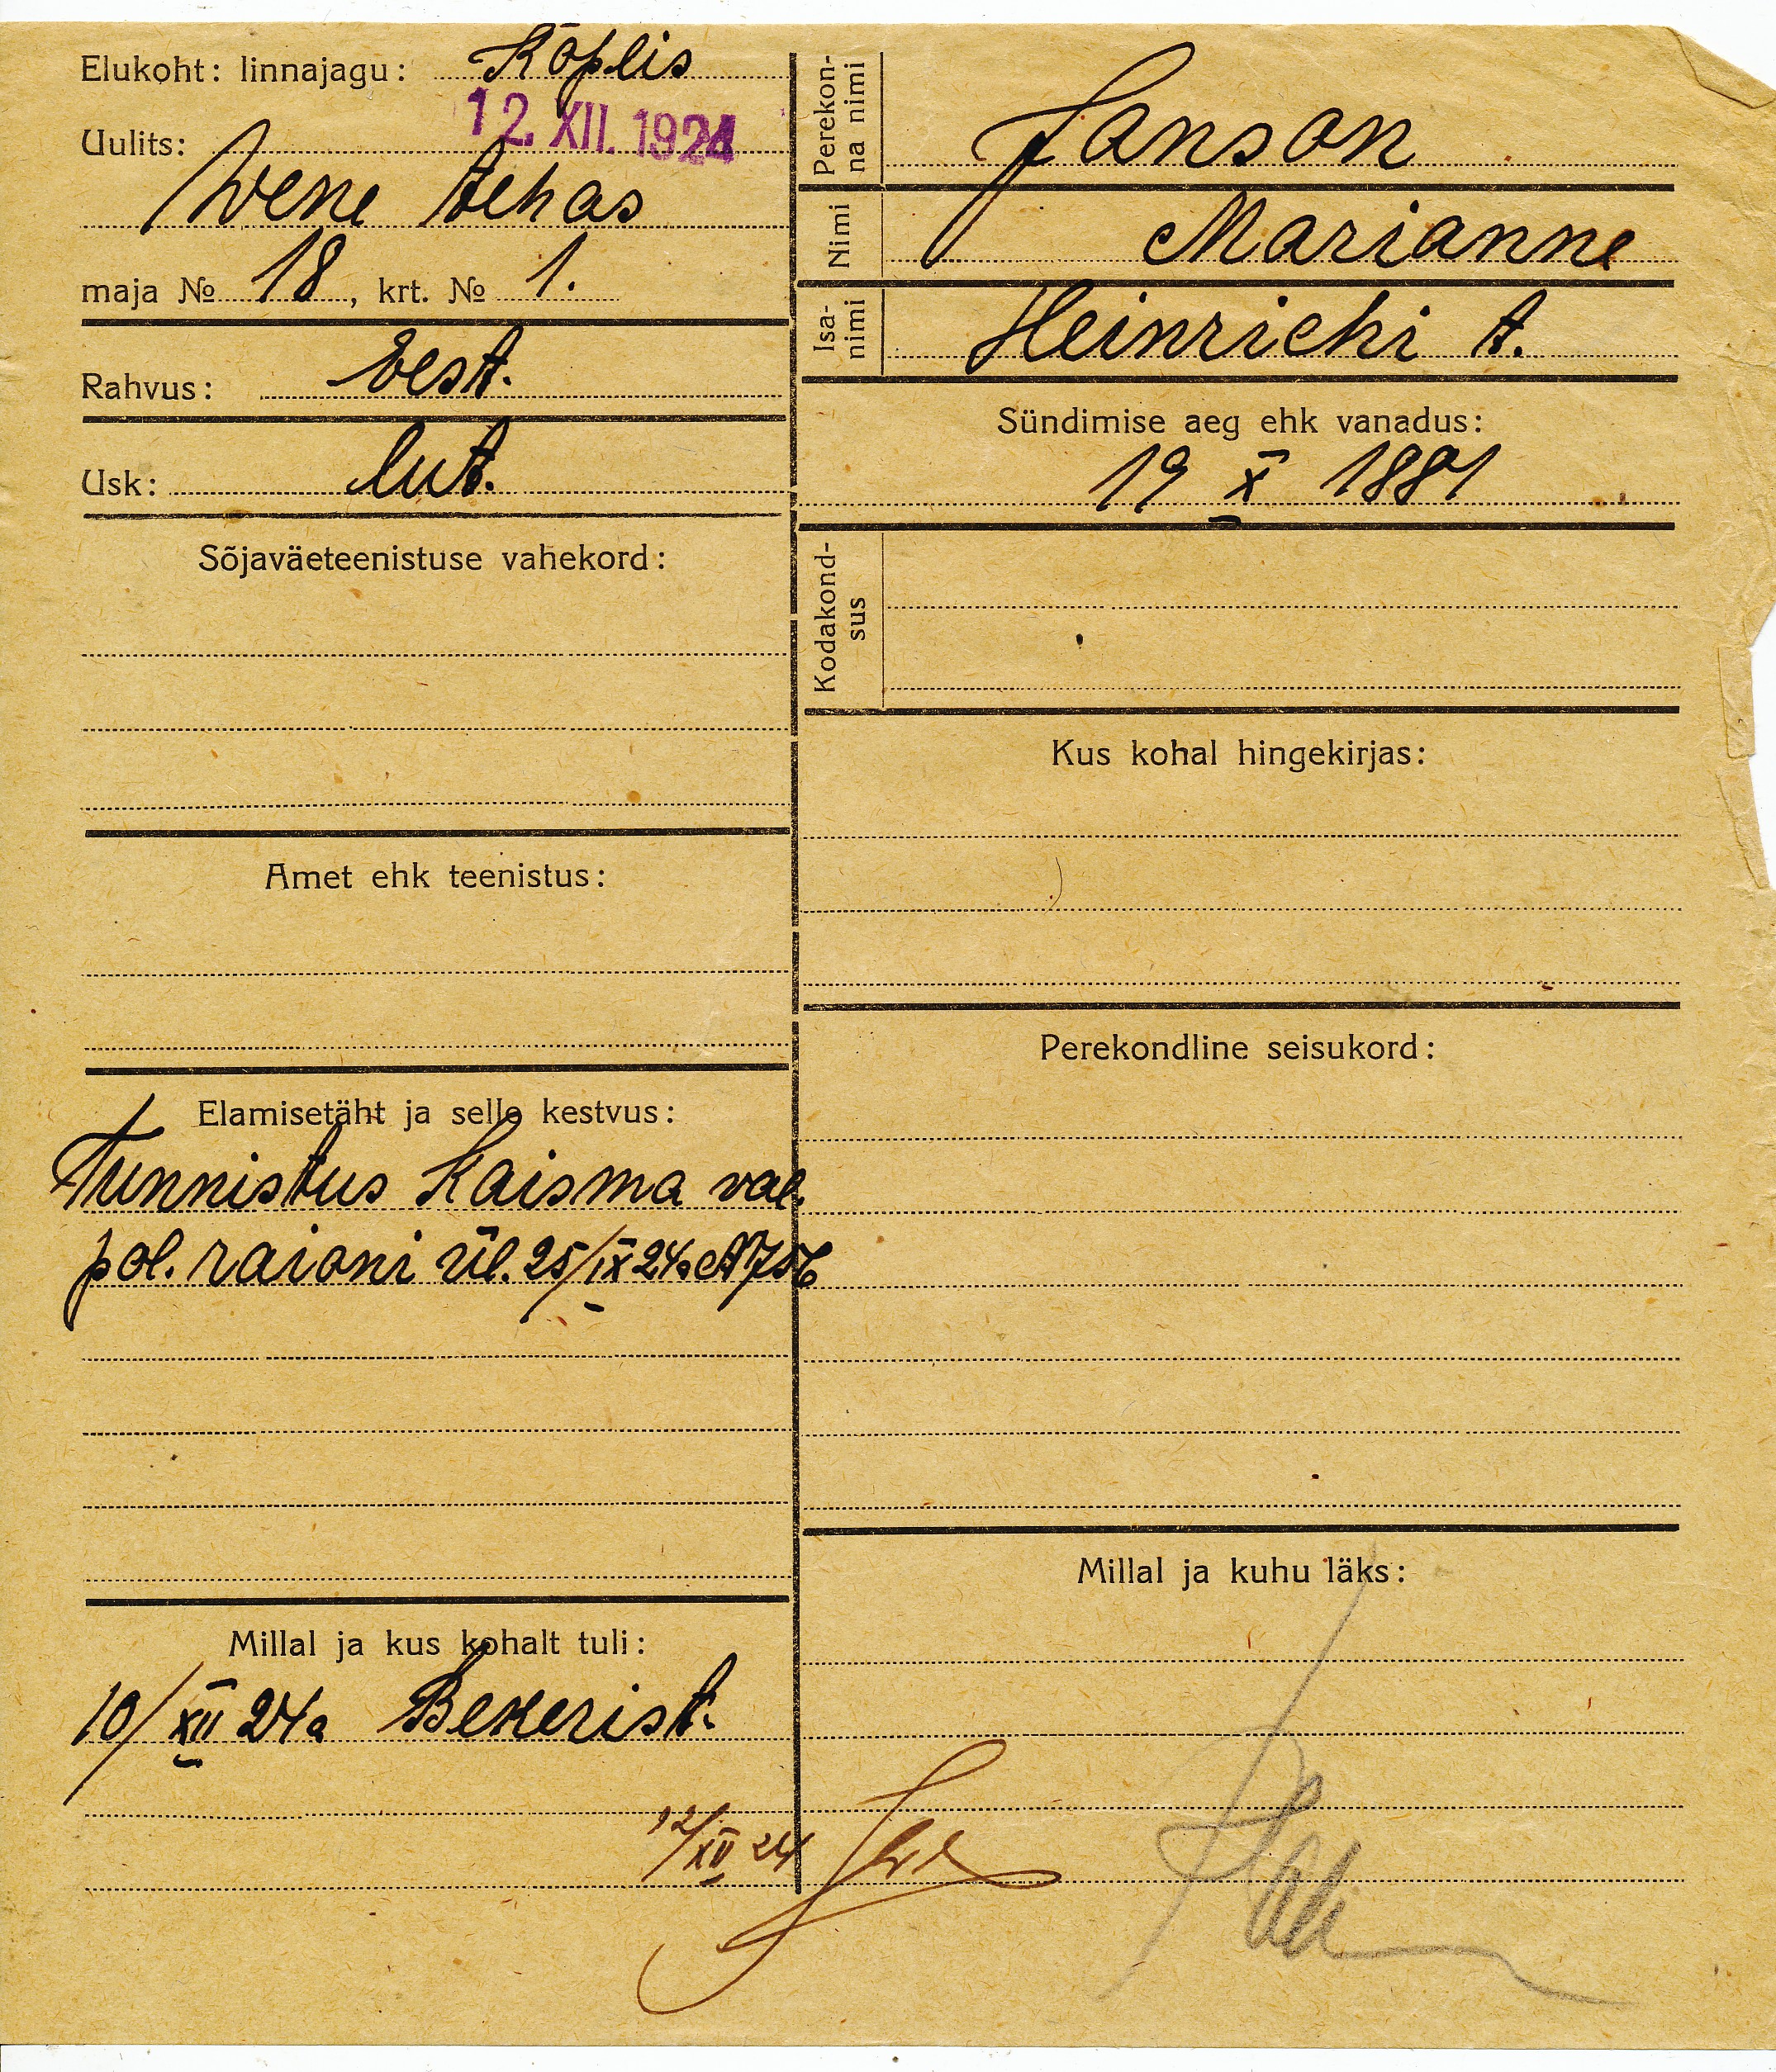 Elukoht: linnajagu: Koplis
12. XII. 1924
Uulits:
Wene tehas
maja № 18, krt. № 1.
Rahvus: eest.
Usk: lut.
Sõjaväeteenistuse vahekord:
Amet ehk teenistus:
Elamisetäht ja selle kestvus:
Tunnistus Kaisma val.
pol. raioni ül. 25/IX 24a
Millal ja kus kohalt tuli:
10/XII 24a Bekerist.
12/XII 24
Perekon-
na nimi
Janson
Nimi
Marianne
Isa-
nimi
Heinrichi t.
Sündimise aeg ehk vanadus:
19 X 1881
Kodakond-
sus
Kus kohal hingekirjas:
Perekondline seisukord:
Millal ja kuhu läks: